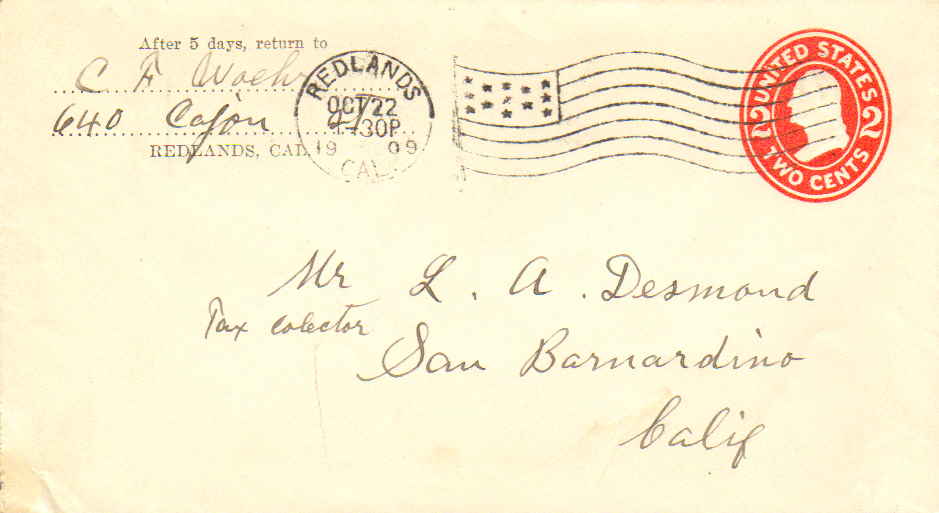 After 5 days, return to
C F Woehr
640 Cajon St
REDLANDS, CAL.
REDLANDS
OCT 22
30P
1909
CAL.
UNITED STATES
2 2
TWO CENTS
Mr L. A. Desmond
Tax colector
San Barnardino
Calif